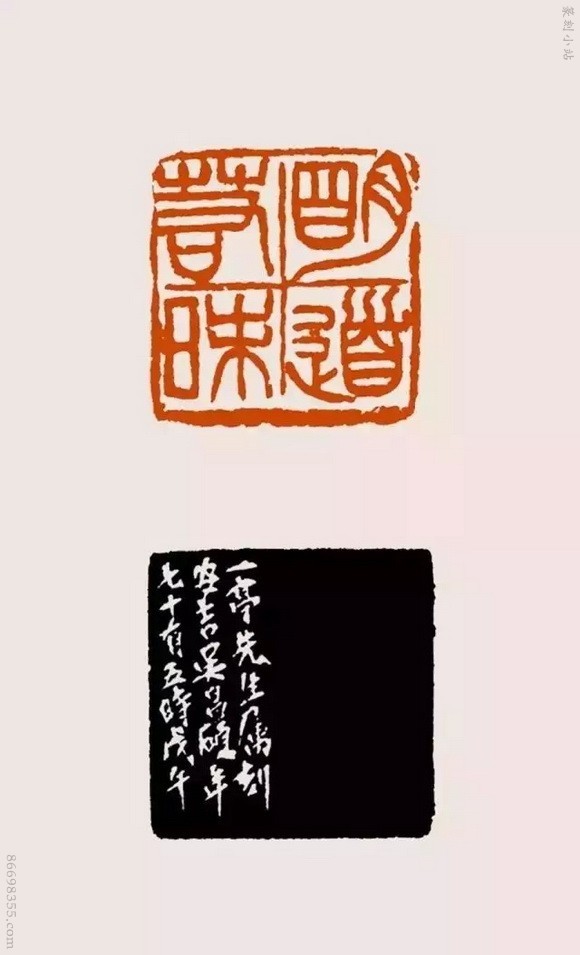 篆刻小站
明道
若昧
一亭先生属刻
安吉吳昌碩年
七十有五時戊午
86698355.com